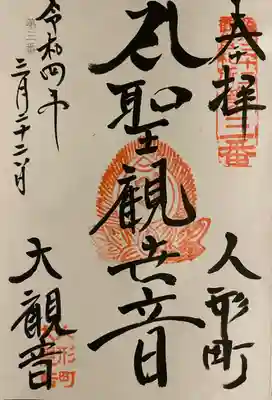 奉拝
人形町
聖観世音
大観音
令和四年
三月二十二日
第三番
人形町